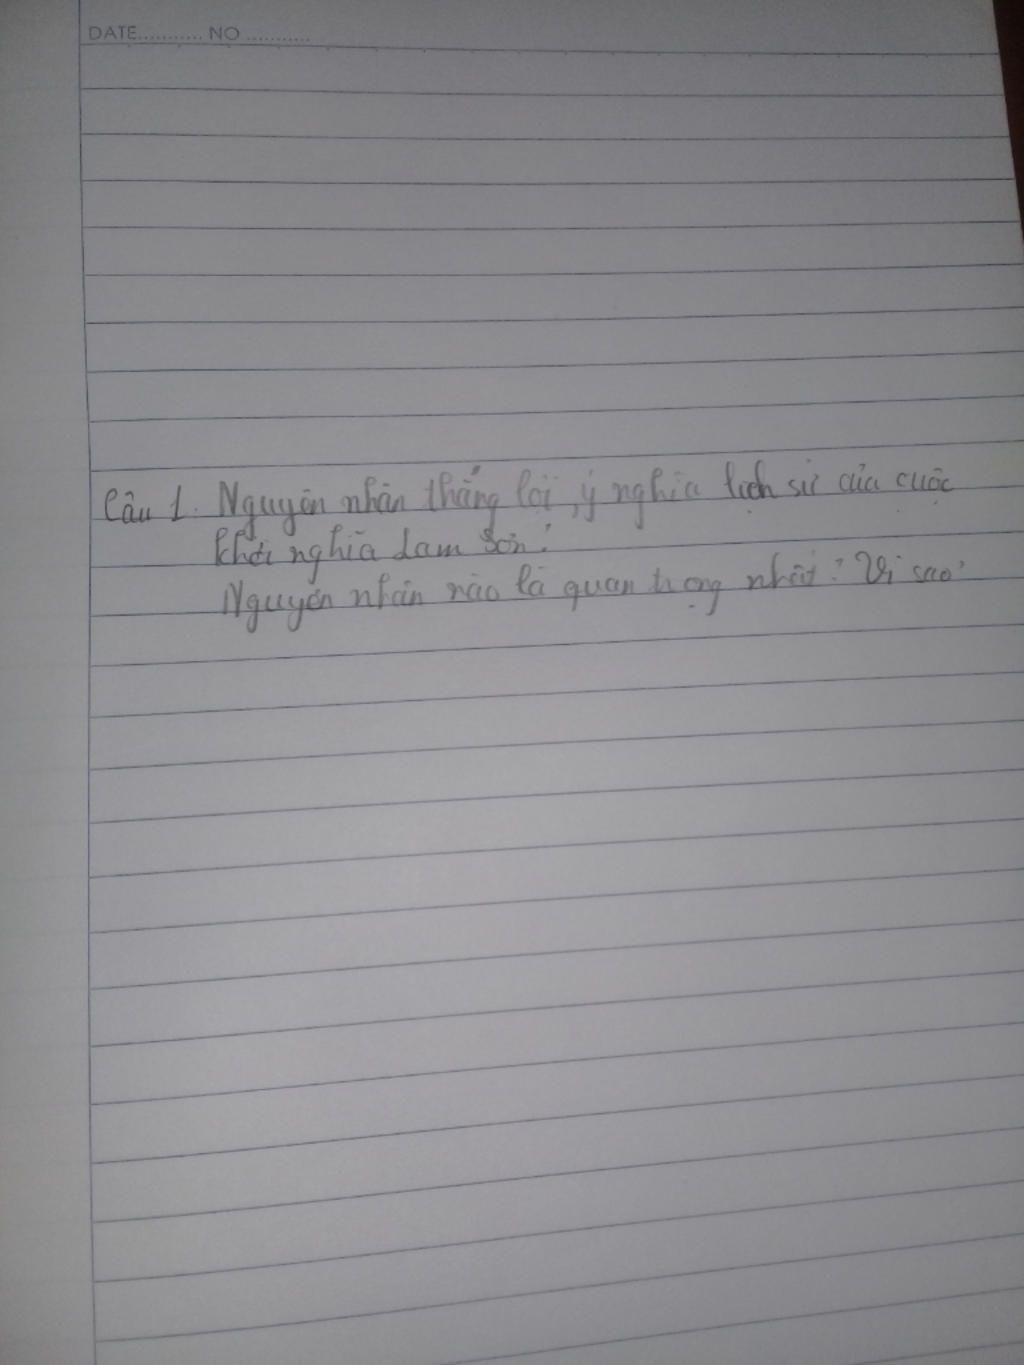 DATE........... NO ...........
Câu 1. Nguyên nhân thắng lợi, ý nghĩa lịch sử của cuộc
khởi nghĩa Lam Sơn?
Nguyên nhân nào là quan trọng nhất? Vì sao?